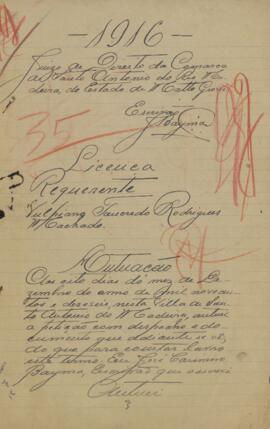 - 1916 -
Juizo de Direito da Comarca
de Santo Antonio do Rio Ma-
deira, do Estado de Matto Grosso
Escrivão
Bayma
35
Licença
Requerente
Vulpiano Tancredo Rodrigues
Machado.
Autuação
Aos oito dias do mez de De-
zembro do anno de mil novecen-
tos e deseseis, nesta Villa de San-
to Antonio do Madeira, autuei
a petição com despacho e do-
cumento que adiante se vê,
do que para constar lavro
este termo. Eu, José Carmino
Bayma, Escrivão que escrevi
Autuei